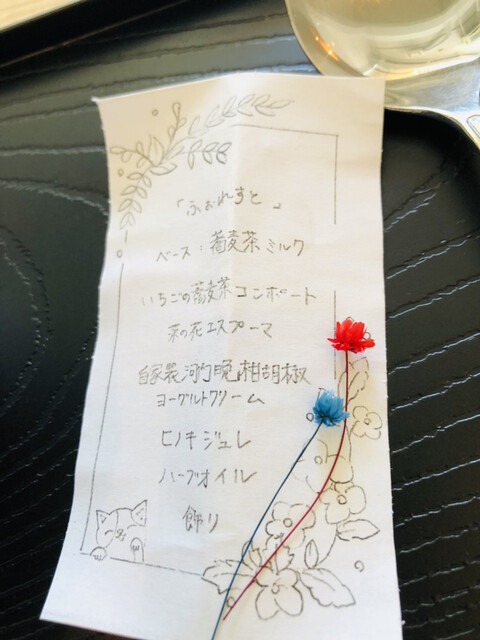 「ふぉれすと」
ベース：蕎麦茶ミルク
いちごの蕎麦茶コンポート
菜の花エスプーマ
自家製河内晩柑胡椒
ヨーグルトクリーム
ヒノキジュレ
ハーブオイル
飾り